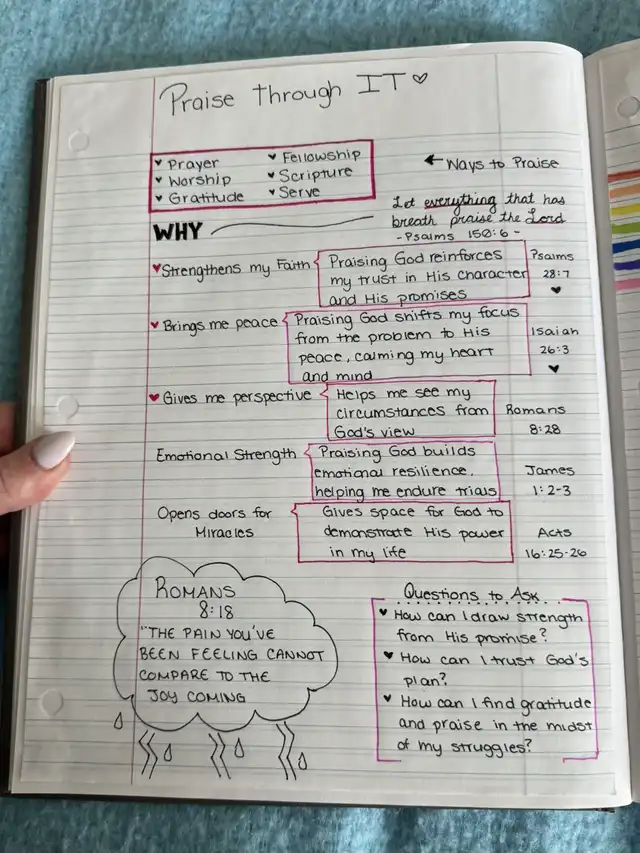 Praise Through IT
Prayer
Worship
Gratitude
Fellowship
Scripture
Serve
Ways to Praise
Let everything that has
breath praise the Lord
-Psalms 150:6-
WHY
Strengthens my Faith
Praising God reinforces
my trust in His character
and His promises
Psalms
28:7
Brings me peace
Praising God shifts my focus
from the problem to His
peace, calming my heart
and mind
Isaiah
26:3
Gives me perspective
Helps me see my
circumstances from
God's view
Romans
8:28
Emotional Strength
Praising God builds
emotional resilience,
helping me endure trials
James
1:2-3
Opens doors for
Miracles
Gives space for God to
demonstrate His power
in my life
Acts
16:25-26
ROMANS
8:18
"THE PAIN YOU'VE
BEEN FEELING CANNOT
COMPARE TO THE
JOY COMING
Questions to Ask
How can I draw strength
from His promise?
How can I trust God's
plan?
How can I find gratitude
and praise in the midst
of my struggles?